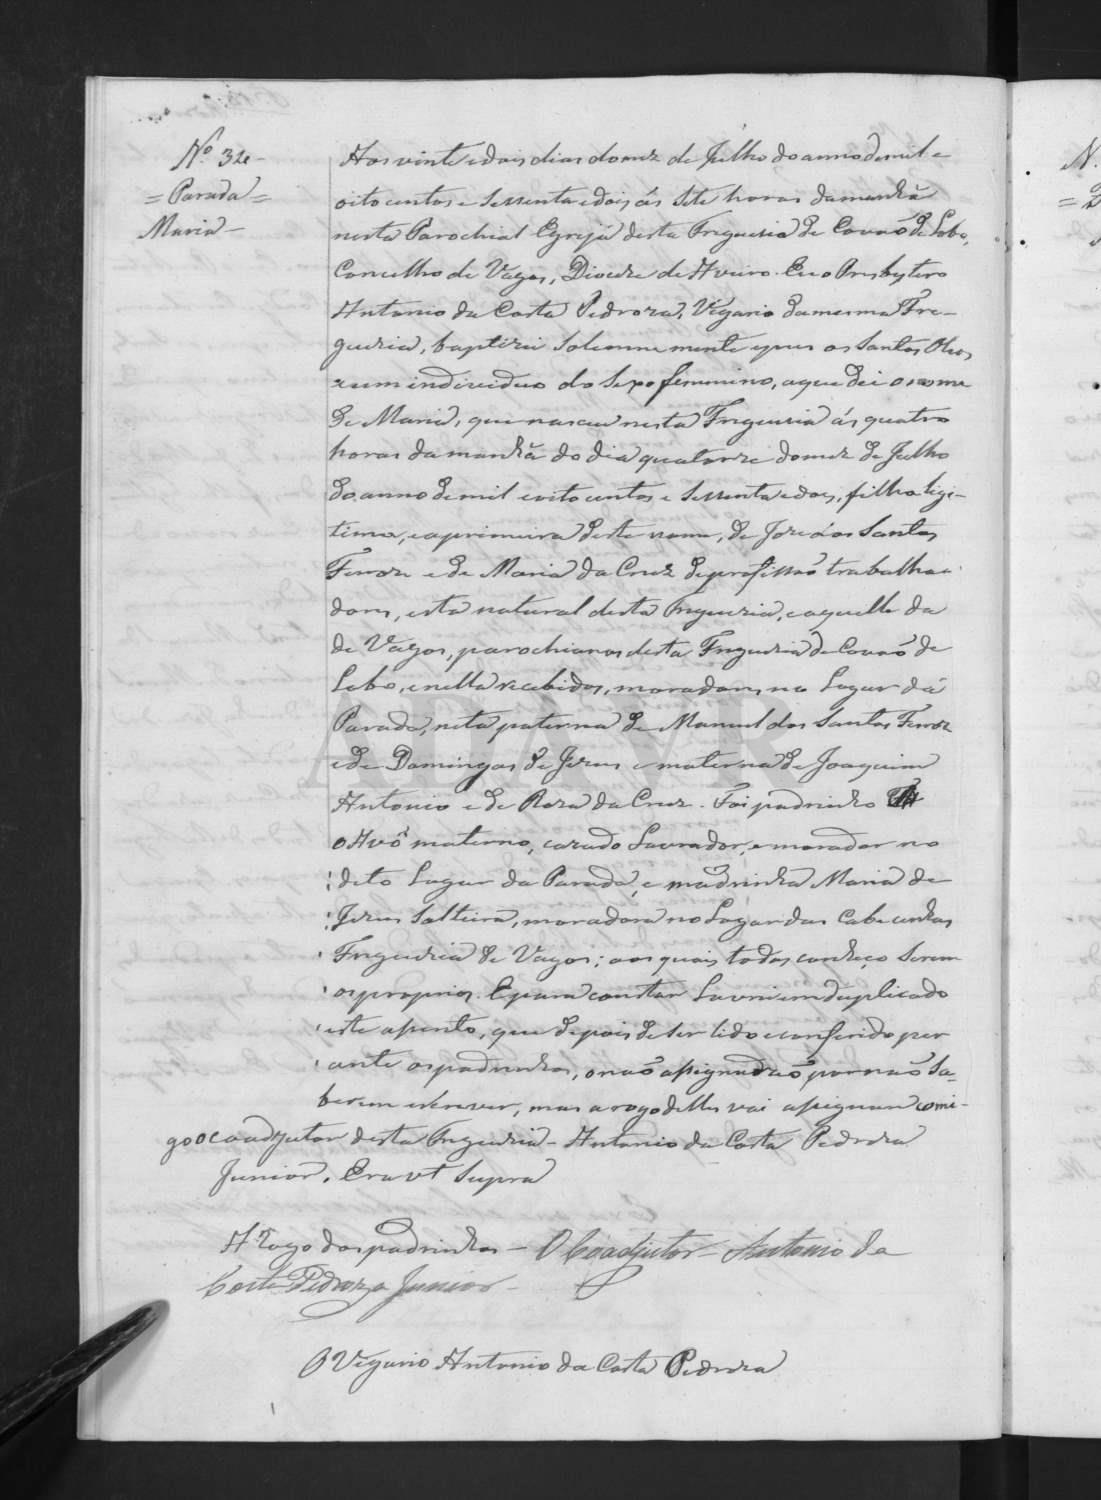 Nº 32
= Parada =
Maria -
Aos vinte e dois dias do mez de Julho do anno de mil e
oito centos e sessenta e dois, ás sete horas da manhã
nesta Parochial Egreja desta Freguezia de Covaõ de Lobo,
Concelho de Vagos, Diocese de Aveiro. Eu o Presbytero
Antonio da Costa Pedroza, Vigario da mesma Fre-
guezia, baptizei solemnemente e puz os Santos Oleos
a um individuo do sexo femmino, a que dei o nome
de Maria, que nasceu nesta Freguezia ás quatro
horas da manhã do dia quatorze do mez de Julho
do anno de mil e oito centos e sessenta e dois, filha legi-
tima, e a primeira deste nome, de Joze dos Santos
Ferroz e de Maria da Cruz de profissaõ trabalha-
dores, esta natural desta Freguezia, e aquelle da
de Vagos, parochianos desta Freguezia de Covaõ de
Lobo, e nella recebidos, moradores no Lugar da
Parada, neta paterna de Manuel dos Santos Ferroz
e de Domingas de Jezus e materna de Joaquim
Antonio e de Roza da Cruz. Foi padrinho
o Avô materno, cazado Lavrador, e morador no
dito Lugar da Parada, e madrinha Maria de
Jezus Solteira, moradora no Lugar das Cabecinhas
Freguezia de Vagos; aos quais todos conheço serem
os proprios. E para constar Lavrei em duplicado
este assento, que depois de ser lido e conferido per
ante os padrinhos, o naõ assignaraõ por naõ Sa-
berem escrever, mas a rogo delles vai assignar comi-
go o Coadjutor desta Freguezia - Antonio da Costa Pedroza
Junior. Era ut supra
A rogo dos padrinhos - O Coadjutor - Antonio da
Costa Pedroza Junior -
O Vigario Antonio da Costa Pedroza